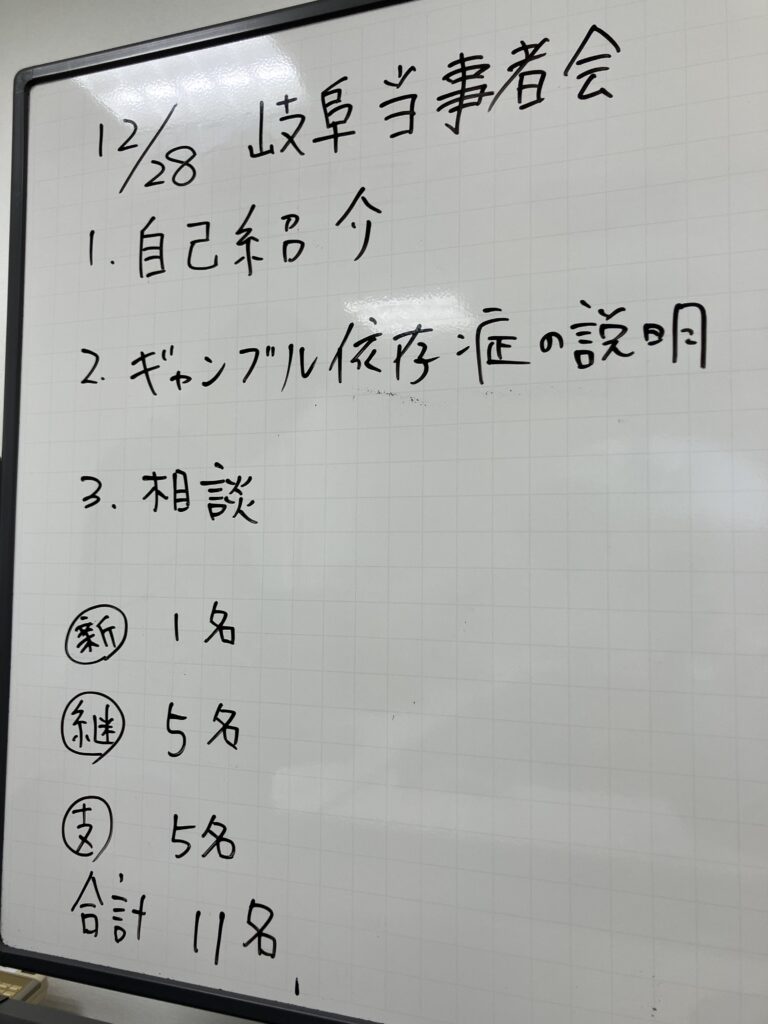 12/28 岐阜当事者会
1. 自己紹介
2. ギャンブル依存症の説明
3. 相談
新 1名
継 5名
支 5名
合計 11名